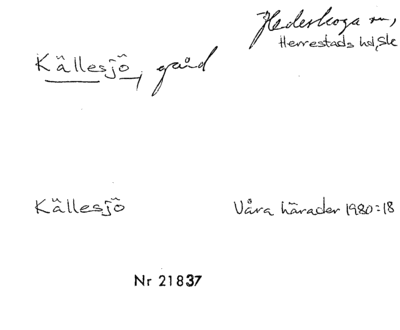 Hedeskoga sn,
Herrestads hd, Sk
Källesjö, gård
Källesjö Våra härader 1980:18
Nr 21837